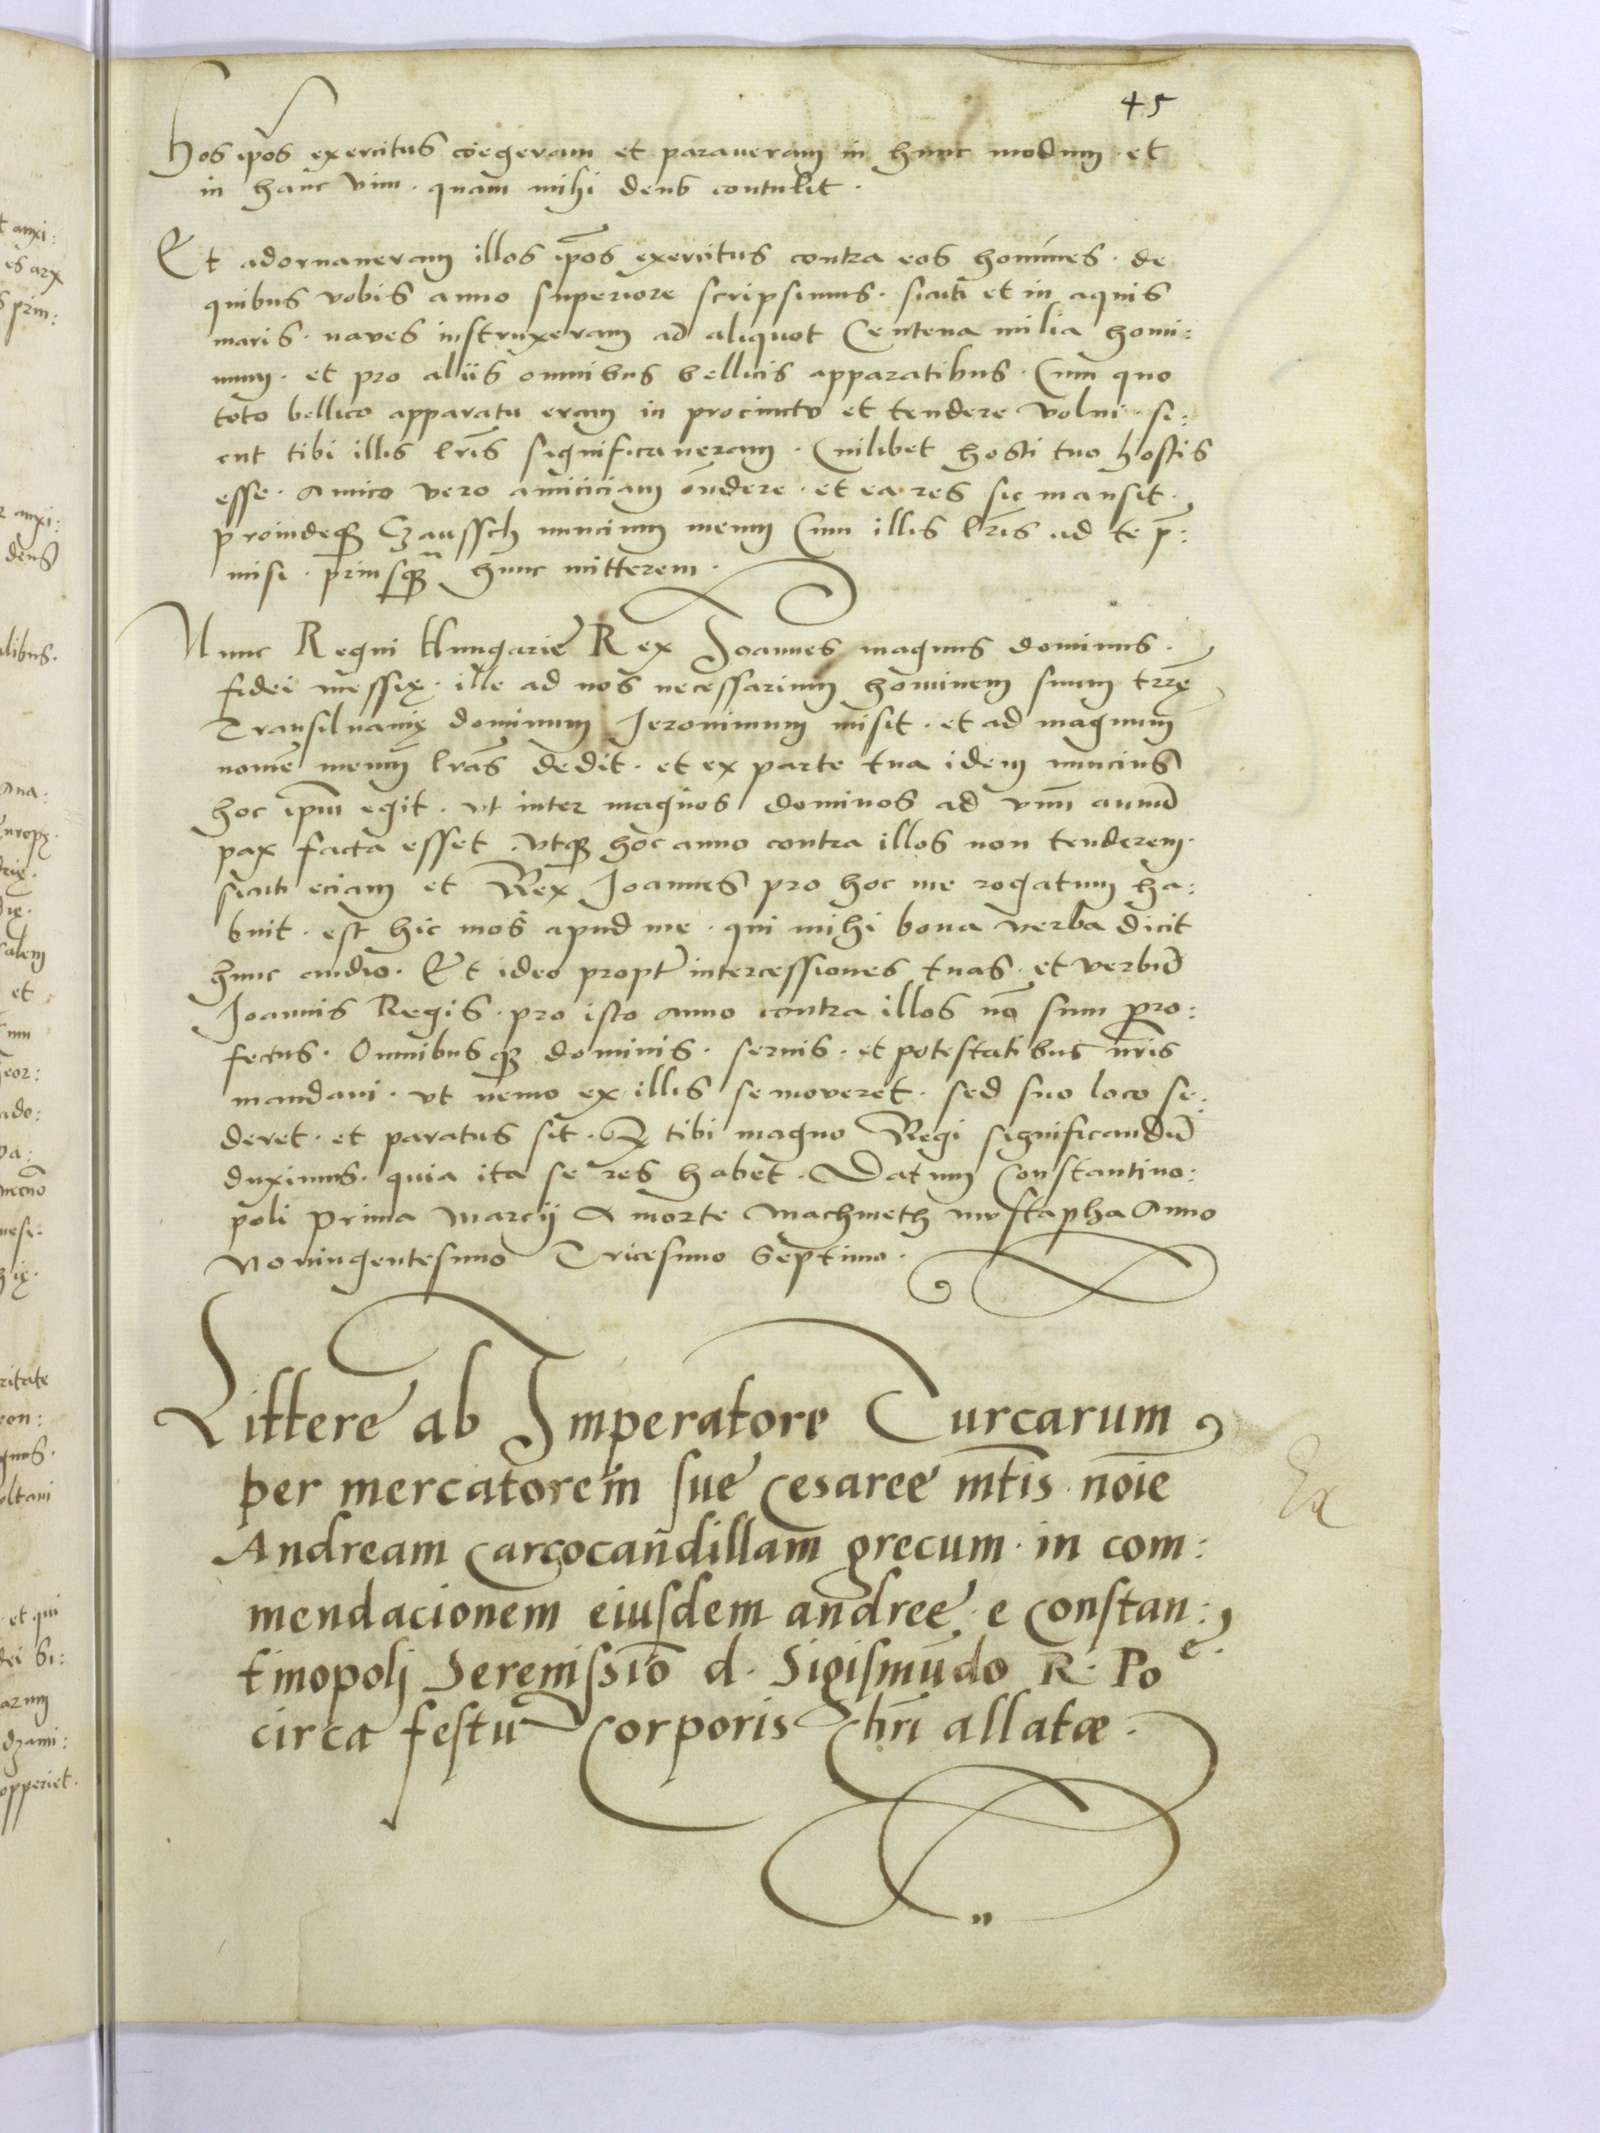 45
Hos ip̄os exercitus coegeram et paraveram in hunc modum · et
in hanc vim · quam mihi deus contulit ·
Et adornaveram illos ip̄os exercitus contra eos homines · de
quibus vobis anno superiore scripsimus · sicuti et in aquis
maris · naves instruxeram ad aliquot Centena milia homi:
num · et pro aliis omnibus bellicis apparatibus · Cum quo
toto bellico apparatu eram in procinctu et tendere volui · si:
cut tibi illis l̄ris significaveram · Cuilibet hosti tuo hostis
esse · amico vero amiciciam ōndere · et ea res sic mansit ·
proindeqȝ Czaussch nuncium meum Cum illis l̄ris ad te p̄:
misi · priusqȝ hunc mitterem ·
Nunc Regni Hungarie Rex Joannes magnus dominus ·
fidei messię · ille ad nos necessarium hominem suum tr̄rę
Transilvanię dominum Jeronimum misit · et ad magnum
nomē meum l̄ras dedit · et ex parte tua idem nuncius
hoc ip̄m egit · vt inter magnos dominos ad vnū annū
pax facta esset vtqȝ hoc anno contra illos non tenderem ·
sicuti eciam et Rex Joannes pro hoc me rogatum ha:
buit · est hic mos apud me · qui mihi bona verba dicit
hunc audio · Et ideo propt̄ intercessiones tuas · et verbū
Joannis Regis · pro isto anno contra illos nō sum pro:
fectus · Omnibusqȝ dominis · servis · et potestatibus n̄ris
mandavi · vt nemo ex illis se moveret · sed suo loco se:
deret · et paratus sit · Qȝ tibi magno Regi significandū
duximus · quia ita se res habet · Datum Constantino:
poli prima marcij A morte machmeth mustapha Anno
Noningentesimo Tricesimo Septimo ·
Littere ab Imperatore Turcarum
per mercatorem sue Cesaree m̄tis noīe
Andream Carcocandillam grecum · in com:
mendacionem eiusdem andree · e Constan:
tinopolj Serenissiō d · Sigismūdo R · Poe ·
circa festū Corporis Chr̄i allatæ ·
Ex